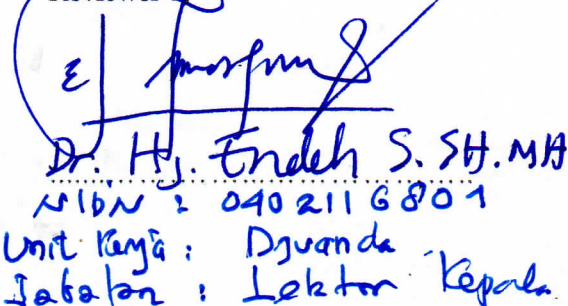 Dr. Hj. Endeh S. SH.MH
NIDN : 0402116801
Unit Kerja : Djuanda
Jabatan : Lektor Kepala